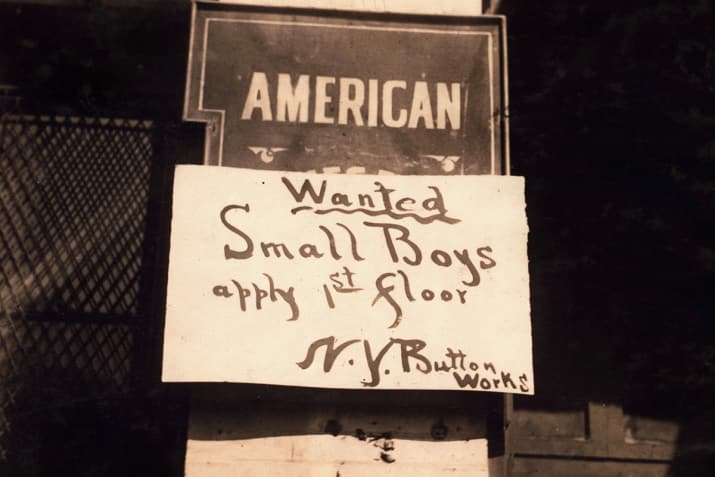 AMERICAN
Wanted
Small Boys
apply 1st floor
N.Y. Button
Works